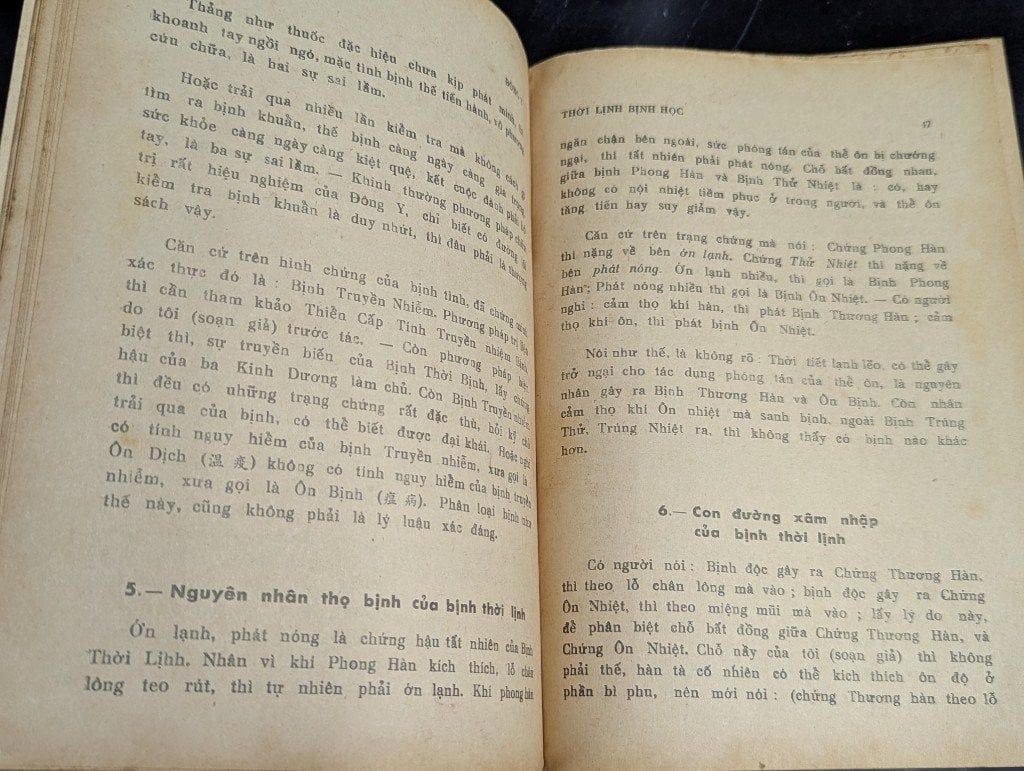 Thảng như thuốc đặc hiệu chưa kịp phát minh,
khoanh tay ngồi ngó, mặc tình bịnh thế tiến hành, vô phương
cứu chữa, là hai sự sai lầm.
Hoặc trải qua nhiều lần kiểm tra mà không cách gì
tìm ra bịnh khuẩn, thế bịnh càng ngày càng gia trọng,
sức khỏe càng ngày càng kiệt quệ, kết cuộc đành phải bó
tay, là ba sự sai lầm. — Khinh thường phương pháp chẩn
trị rất hiệu nghiệm của Đông Y, chỉ biết có đường lối
kiểm tra bịnh khuẩn là duy nhứt, thì đâu phải là thượng
sách vậy.
Căn cứ trên hình chứng của bịnh tình, đã chứng minh
xác thực đó là : Bịnh Truyền Nhiễm. Phương pháp trị liệu
thì cần tham khảo Thiền Cấp Tính Truyền nhiệm Bịnh
do tôi (soạn giả) trước tác. — Còn phương pháp biện
biệt thì, sự truyền biến của Bịnh Thời Bịnh, lấy chứng
hậu của ba Kinh Dương làm chủ. Còn Bịnh Truyền nhiễm,
thì đều có những trạng chứng rất đặc thù, hỏi kỹ chỗ
trải qua của bịnh, có thể biết được đại khái. Hoặc nghi
có tính nguy hiểm của bịnh Truyền nhiễm, xưa gọi là :
Ôn Dịch (溫 疫) không có tính nguy hiểm của bịnh truyền
nhiễm, xưa gọi là Ôn Bịnh (瘟 病). Phân loại bịnh như
thế này, cũng không phải là lý luận xác đáng.
5.— Nguyên nhân thọ bịnh của bịnh thời lịnh
Ớn lạnh, phát nóng là chứng hậu tất nhiên của Bịnh
Thời Lịhh. Nhân vì khí Phong Hàn kích thích, lỗ chân
lông teo rút, thì tự nhiên phải ớn lạnh. Khí phong hàn
THỜI LỊNH BỊNH HỌC
47
ngăn chận bên ngoài, sức phóng tán của thể ôn bị chướng
ngại, thì tất nhiên phải phát nóng. Chỗ bất đồng nhau,
giữa bịnh Phong Hàn và Bịnh Thử Nhiệt là : có, hay
không có nội nhiệt tiềm phục ở trong người, và thể ôn
tăng tiến hay suy giảm vậy.
Căn cứ trên trạng chứng mà nói : Chứng Phong Hàn
thì nặng về bên ớn lạnh. Chứng Thử Nhiệt thì nặng về
bên phát nóng. Ớn lạnh nhiều, thì gọi là Bịnh Phong
Hàn ; Phát nóng nhiều thì gọi là Bịnh Ôn Nhiệt. — Có người
nghi : cảm thọ khí hàn, thì phát Bịnh Thương Hàn ; cảm
thọ khí ôn, thì phát bịnh Ôn Nhiệt.
Nói như thế, là không rõ : Thời tiết lạnh lẽo, có thể gây
trở ngại cho tác dụng phóng tán của thể ôn, là nguyên
nhân gây ra Bịnh Thương Hàn và Ôn Bịnh. Còn nhân
cảm thọ khí Ôn nhiệt mà sanh bịnh, ngoài Bịnh Trúng
Thử, Trúng Nhiệt ra, thì không thấy có bịnh nào khác
hơn.
6.— Con đường xâm nhập
của bịnh thời lịnh
Có người nói : Bịnh độc gây ra Chứng Thương Hàn,
thì theo lỗ chân lông mà vào ; bịnh độc gây ra Chứng
Ôn Nhiệt, thì theo miệng mũi mà vào ; lấy lý do này,
để phân biệt chỗ bất đồng giữa Chứng Thương Hàn, và
Chứng Ôn Nhiệt. Chỗ nầy của tôi (soạn giả) thì không
phải thế, hàn tà cố nhiên có thể kích thích ôn độ ở
phần bì phu, nên mới nói : (chứng Thương hàn theo lỗ